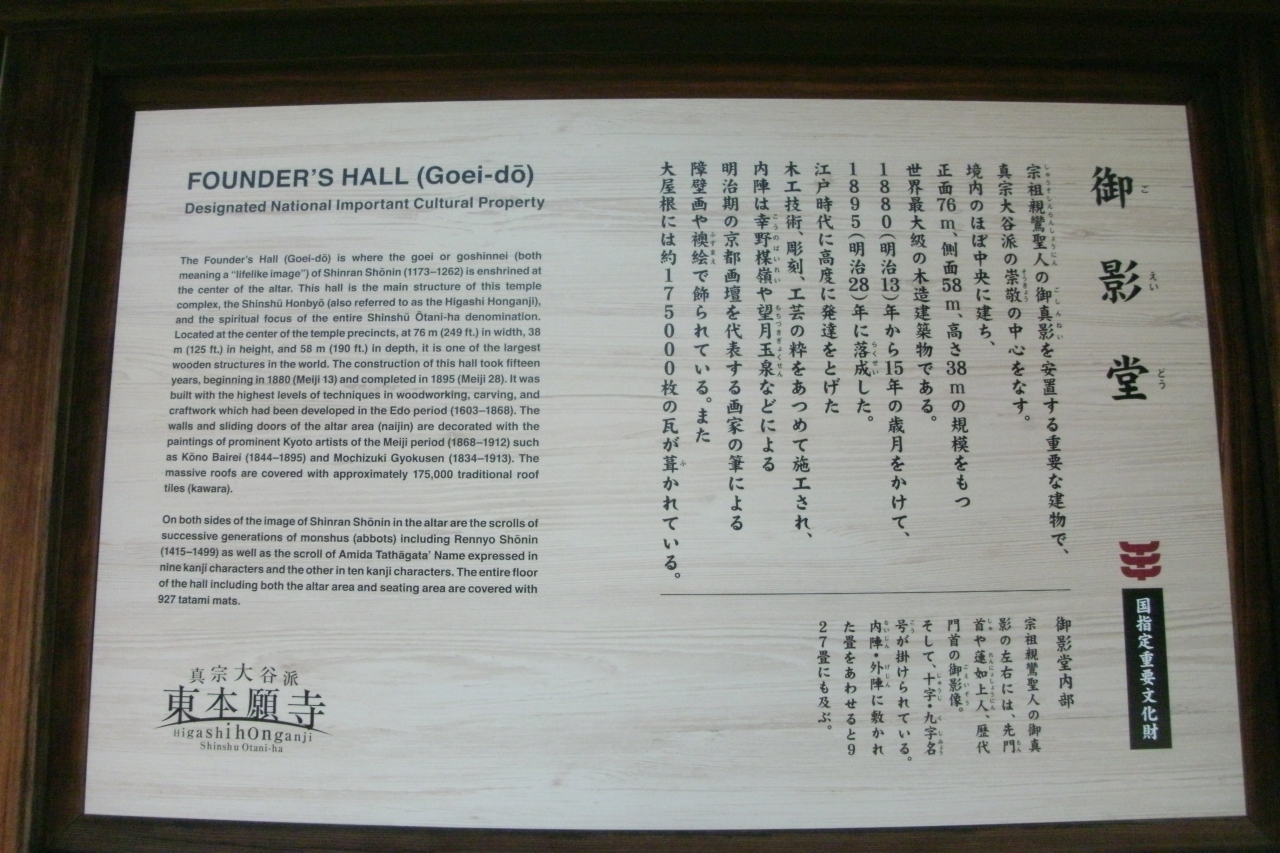 FOUNDER'S HALL (Goei-dō)
Designated National Important Cultural Property
The Founder's Hall (Goei-dō) is where the goei or goshinnei (both
meaning a "lifelike image") of Shinran Shōnin (1173–1262) is enshrined at
the center of the altar. This hall is the main structure of this temple
complex, the Shinshū Honbyō (also referred to as the Higashi Honganji),
and the spiritual focus of the entire Shinshū Ōtani-ha denomination.
Located at the center of the temple precincts, at 76 m (249 ft.) in width, 38
m (125 ft.) in height, and 58 m (190 ft.) in depth, it is one of the largest
wooden structures in the world. The construction of this hall took fifteen
years, beginning in 1880 (Meiji 13) and completed in 1895 (Meiji 28). It was
built with the highest levels of techniques in woodworking, carving, and
craftwork which had been developed in the Edo period (1603–1868). The
walls and sliding doors of the altar area (naijin) are decorated with the
paintings of prominent Kyoto artists of the Meiji period (1868–1912) such
as Kōno Bairei (1844–1895) and Mochizuki Gyokusen (1834–1913). The
massive roofs are covered with approximately 175,000 traditional roof
tiles (kawara).
On both sides of the image of Shinran Shōnin in the altar are the scrolls of
successive generations of monshus (abbots) including Rennyo Shōnin
(1415–1499) as well as the scroll of Amida Tathāgata' Name expressed in
nine kanji characters and the other in ten kanji characters. The entire floor
of the hall including both the altar area and seating area are covered with
927 tatami mats.
真宗大谷派
東本願寺
Higashi hOnganji
Shinshu Otani-ha
御影堂
ご えい どう
国指定重要文化財
宗祖親鸞聖人の御真影を安置する重要な建物で、
真宗大谷派の崇敬の中心をなす。
境内のほぼ中央に建ち、
正面76m、側面58m、高さ38mの規模をもつ
世界最大級の木造建築物である。
1880(明治13)年から15年の歳月をかけて、
1895(明治28)年に落成した。
江戸時代に高度に発達をとげた
木工技術、彫刻、工芸の粋をあつめて施工され、
内陣は幸野楳嶺や望月玉泉などによる
明治期の京都画壇を代表する画家の筆による
障壁画や襖絵で飾られている。また
大屋根には約175000枚の瓦が葺かれている。
御影堂内部
宗祖親鸞聖人の御真
影の左右には、先門
首や蓮如上人、歴代
門首の御影像。
そして、十字・九字名
号が掛けられている。
内陣・外陣に敷かれ
た畳をあわせると9
27畳にも及ぶ。